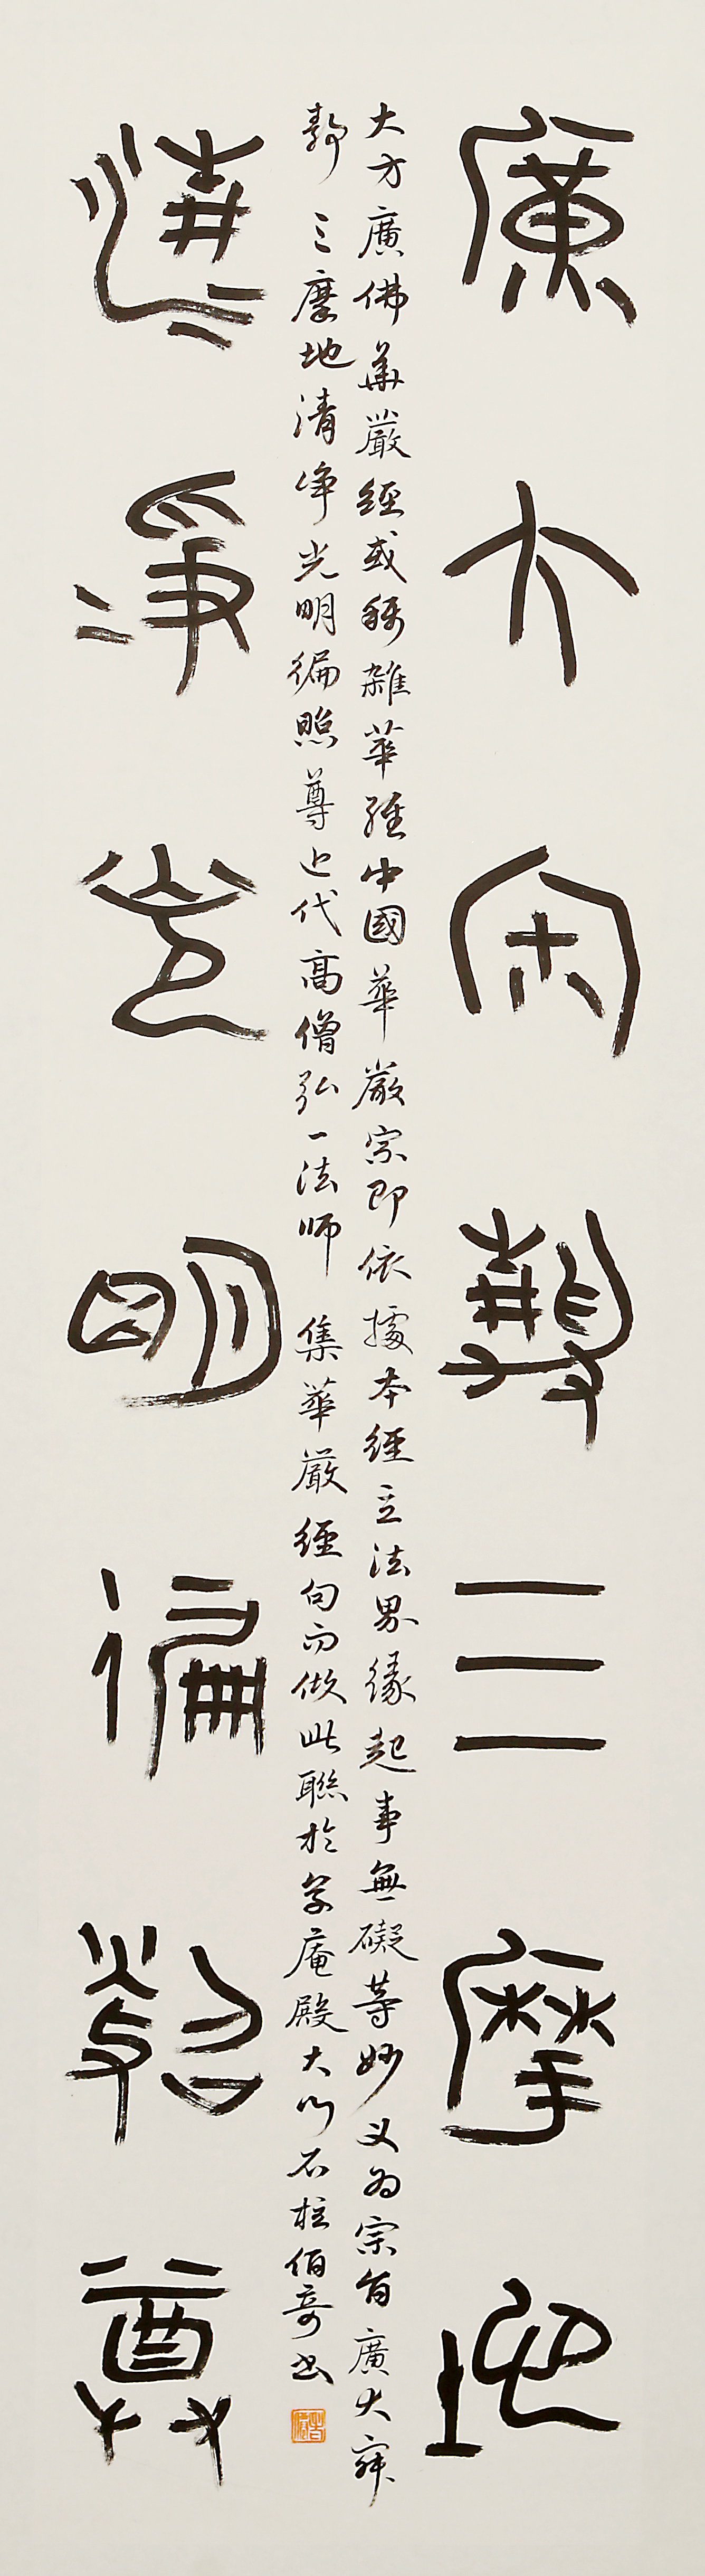 廣大寂靜三摩地
大方廣佛華嚴經或稱雜華經中國華嚴宗即依據本經立法界緣起事無礙等妙义為宗旨廣大寂
靜三摩地清淨光明徧照尊近代高僧弘一法师集華嚴經句而做此聯於草庵殿大门石柱伯奇書
清淨光明徧照尊